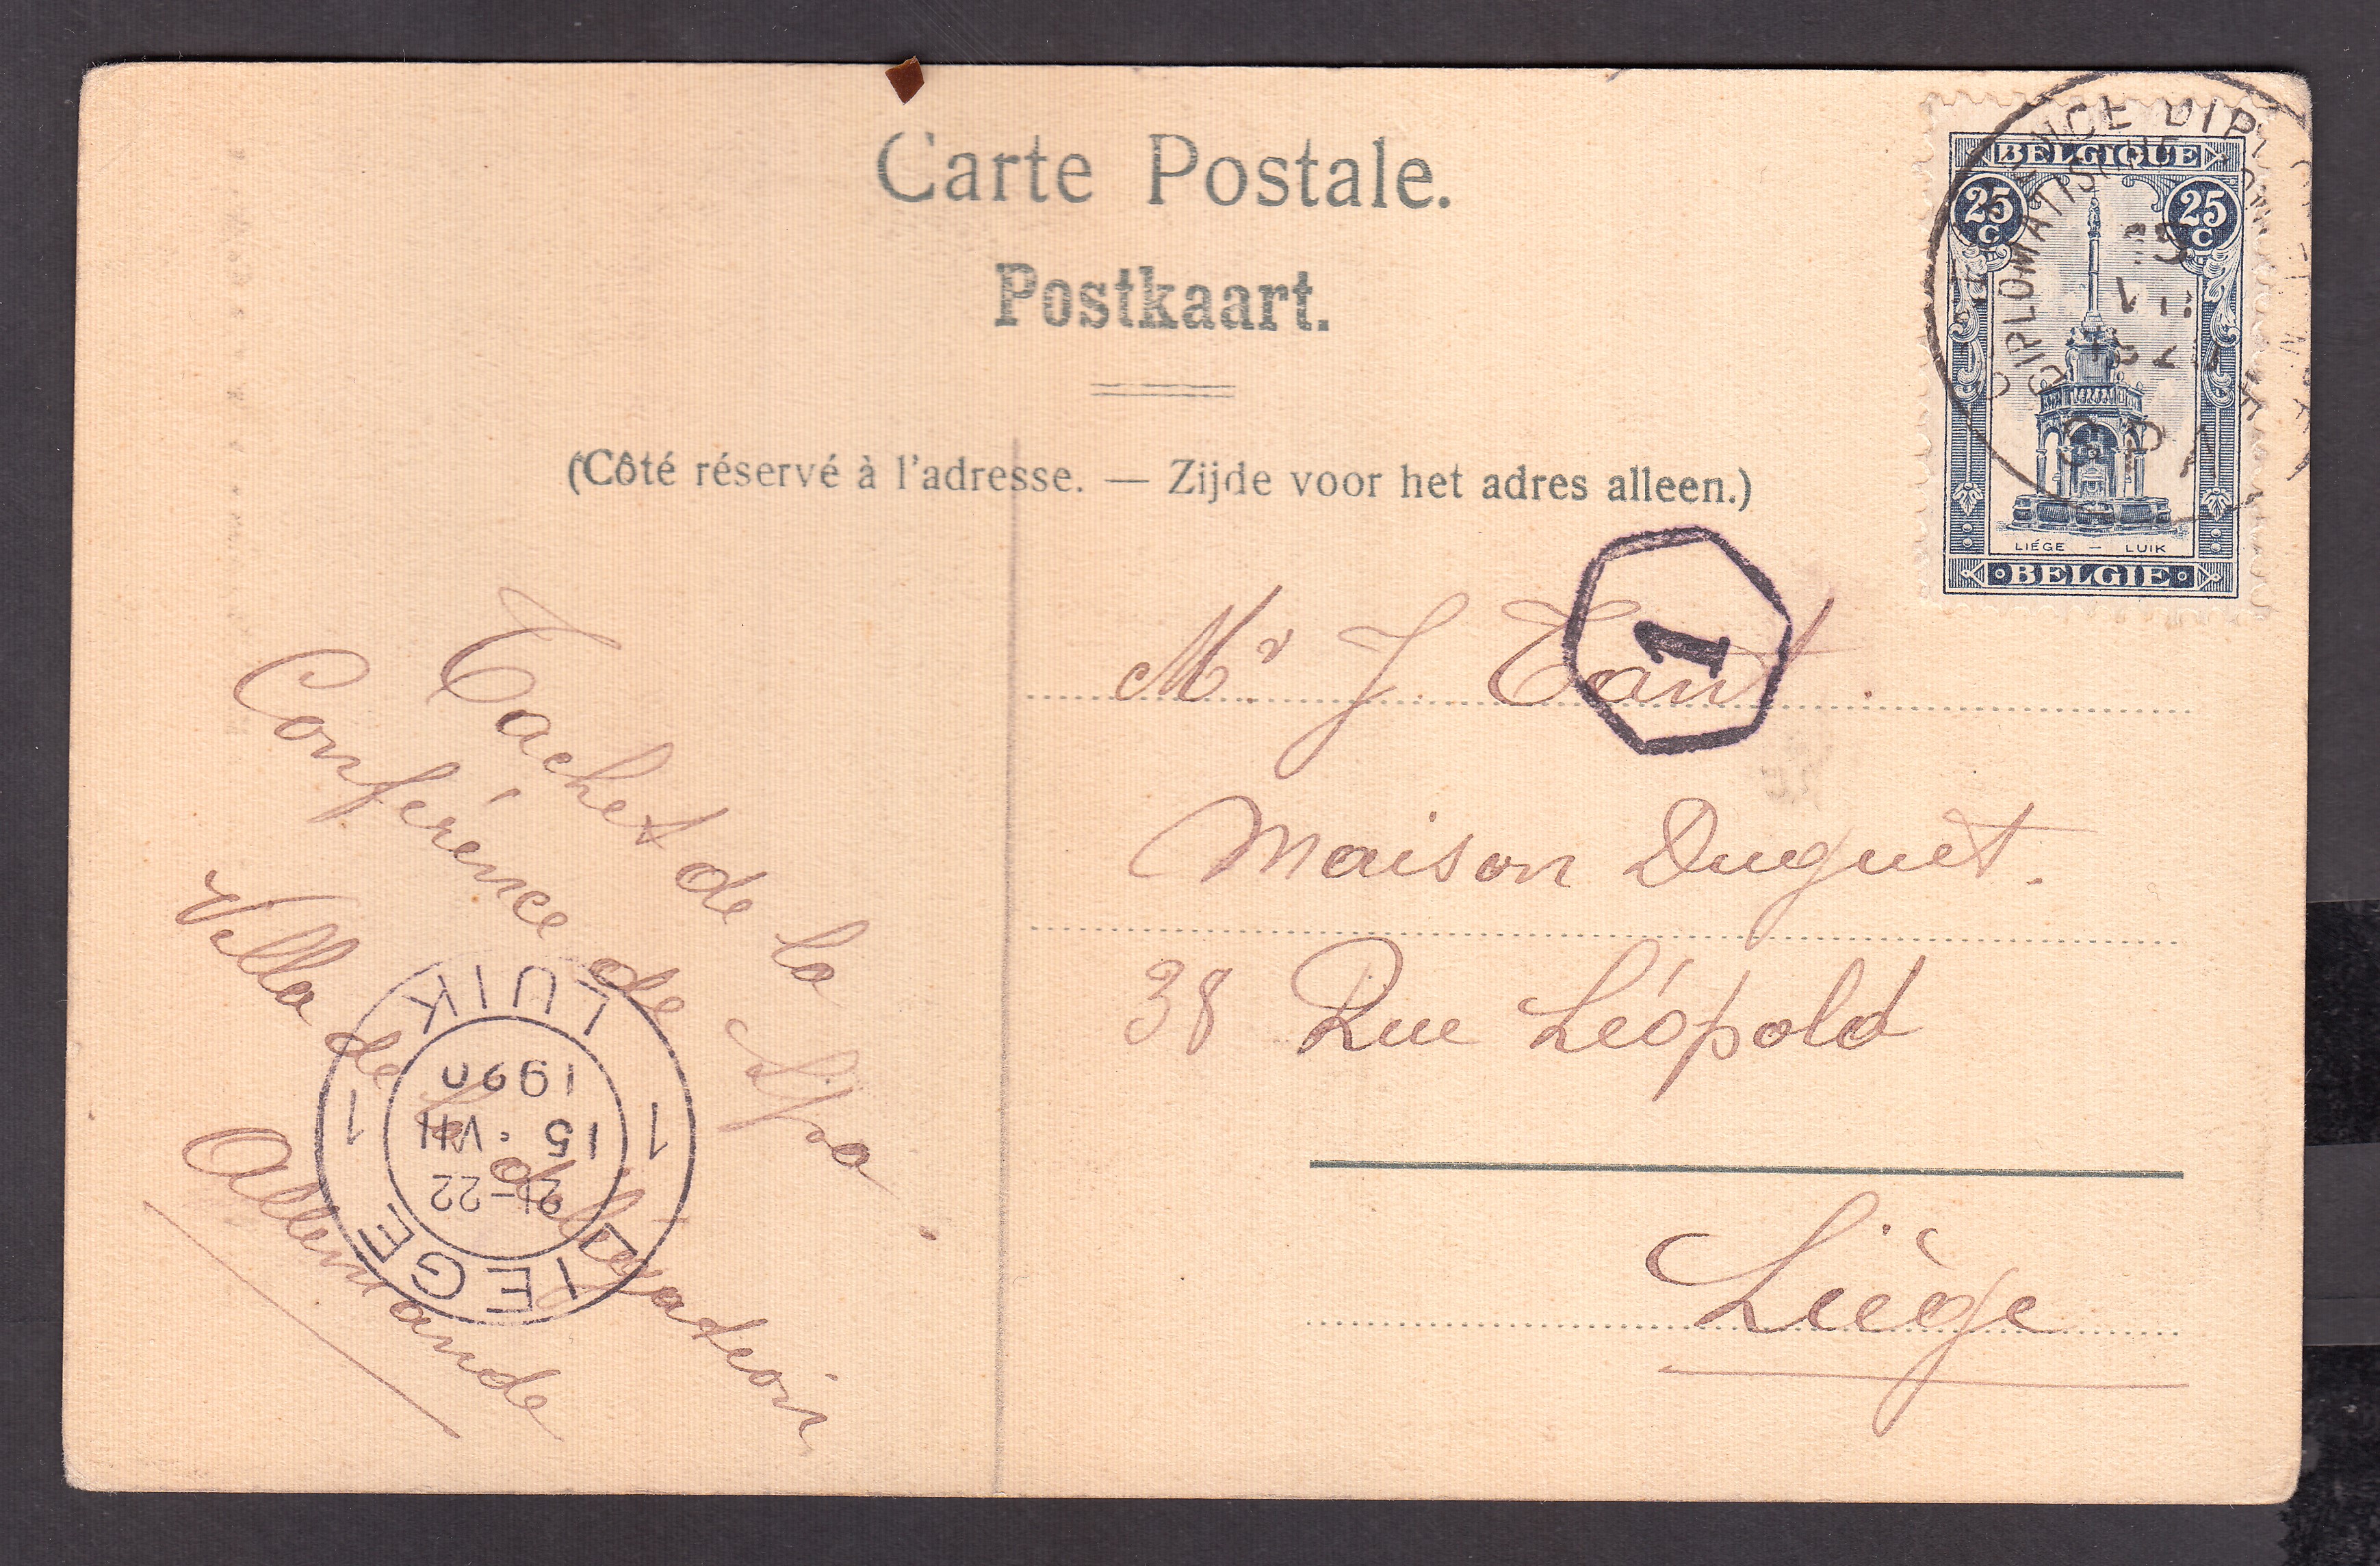 Carte Postale.
Postkaart.
(Côté réservé à l'adresse. — Zijde voor het adres alleen.)
BELGIQUE
25 C 25 C
LIÉGE — LUIK
BELGIE
DIPLOMATISCHE
1
Mr J Tant.
Maison Duguet.
38 Rue Léopold
Liège
Cachet de la
Conférence de Spa.
Villa de la délégation
Allemande
LUIK
1 1
1920
15 · VII
21-22
LIEGE